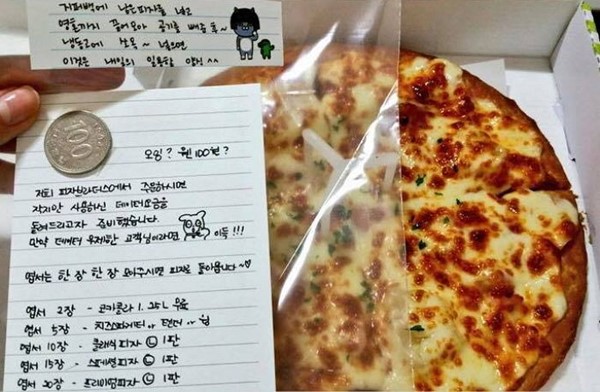 지퍼백에 남은피자를 넣고
영혼까지 끌어모아 공기를 빼준 후~
냉동고에 쏘옥~ 넣으면
이것은 내일의 일용할 양식^^
100
오잉? 웬 100원?
저희 피자브라더스에서 주문하시면
작지만 사용하신 데이터요금을
돌려드리고자 준비했습니다.
만약 데이터 무제한 고객님이라면 이득!!!
엽서는 한장 한장 모아주시면 피자로 돌아옵니다~♡
엽서 2장 - 코카콜라 1.25L
엽서 5장 - 치즈스파게티 or 텐더 or 윙
엽서 10장 - 클래식피자 Ⓛ 1판
엽서 15장 - 스페셜피자 Ⓛ 1판
엽서 20장 - 프리미엄피자 Ⓛ 1판